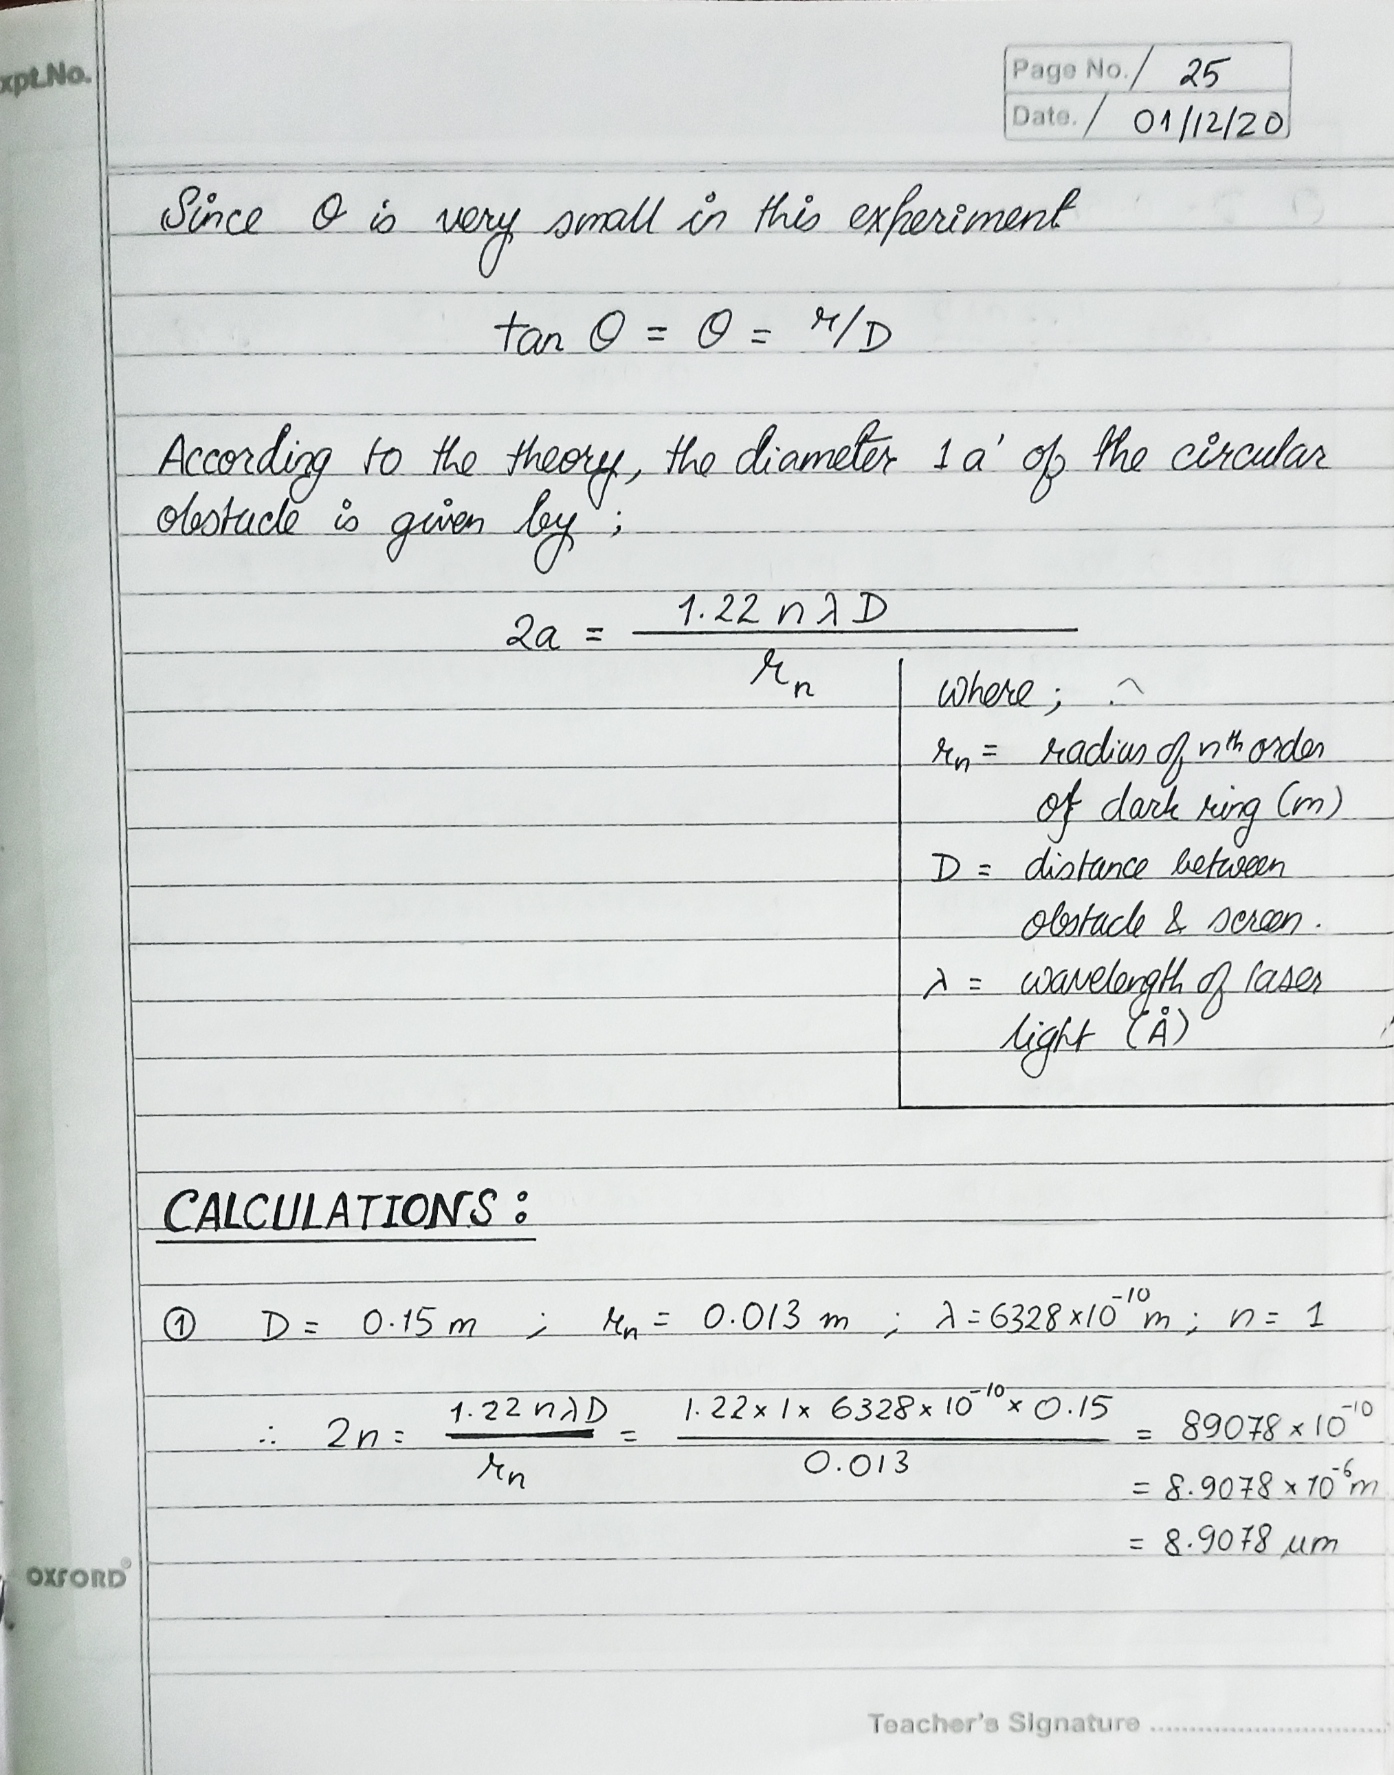 xpt.No.
Page No. / 25
Date. / 01/12/20
Since θ is very small in this experiment
tan θ = θ = r/D
According to the theory, the diameter 1a' of the circular
obstacle is given by ;
2a = 1.22 n λ D / rn
where ;
rn = radius of nth order
of dark ring (m)
D = distance between
obstacle & screen.
λ = wavelength of laser
light (Å)
CALCULATIONS :
① D = 0.15 m ; rn = 0.013 m ; λ = 6328 x 10⁻¹⁰ m ; n = 1
∴ 2n = 1.22 n λ D / rn = 1.22 x 1 x 6328 x 10⁻¹⁰ x 0.15 / 0.013 = 89078 x 10⁻¹⁰
= 8.9078 x 10⁻⁶ m
= 8.9078 µm
OXFORD®
Teacher's Signature ..............................